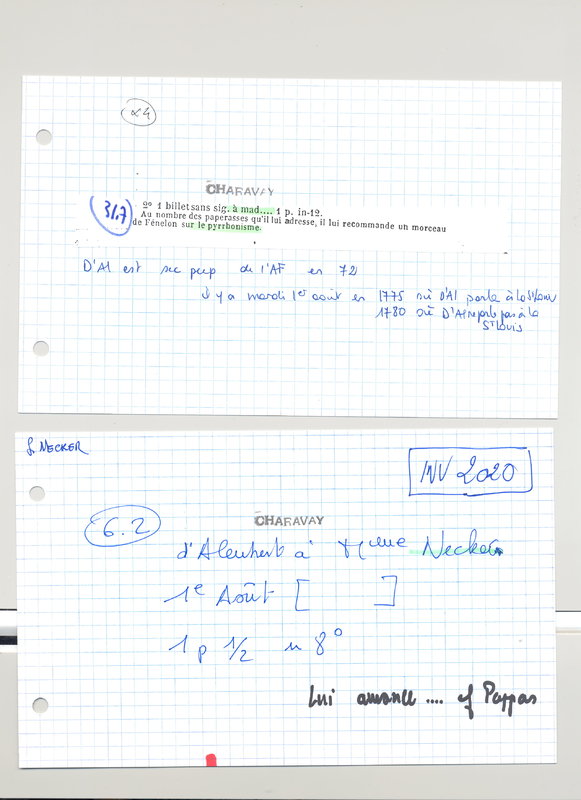 α4
CHARAVAY
31.7
2º 1 billet sans sig. à mad.... 1 p. in-12.
Au nombre des paperasses qu'il lui adresse, il lui recommande un morceau
de Fénelon sur le pyrrhonisme.
D'Al est sec perp de l'AF en 72
il y a mardi 1er août en 1775 où D'Al parle à la St Louis
1780 où D'Al ne parle pas à la
St Louis
S. NECKER
INV 2020
6.2
CHARAVAY
d'Alembert à Mme Necker
1e Août [ ]
1 p 1/2 in 8º
Lui annonce .... cf Pappas